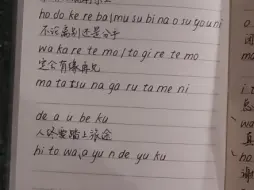 ho do ke re ba/mu su bi na o su you ni
不论离别还是分手
wa ka re te mo/to gi re te mo
定会有缘再见
ma ta tsu na ga ru ta me ni
de a u be ku
人终要踏上旅途
hi to wa,a yu n de yu ku